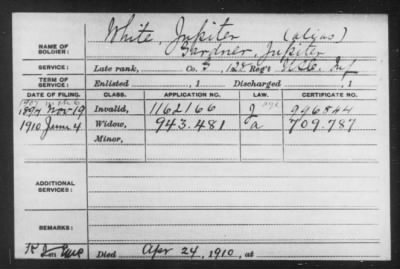 White, Jupiter (alias)
NAME OF SOLDIER: Gardner, Jupiter
SERVICE: Late rank, Co. F, 128 Reg't U.S.C. Inf
TERM OF SERVICE: Enlisted , 1 Discharged , 1
DATE OF FILING. CLASS. APPLICATION NO. LAW. CERTIFICATE NO.
1897 Nov 19 Invalid, 1162166 J 996844
1910 June 4 Widow, 943.481 a 709.787
Minor,
ADDITIONAL SERVICES:
REMARKS:
Died Apr 24, 1910, at